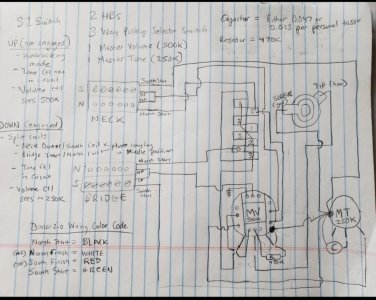 S1 Switch
UP (not engaged)
- Humbucking mode
- Tone Ctl not in circuit
- Volume ctl sees 500K
DOWN (engaged)
- Split coils
- Neck Outer/South Coil
- Bridge Inner/North Coil
in middle position
- Tone Ctl in Circuit
- Volume ctl sees ~ 250K
Dimarzio Wiring Color Code
North Start = BLACK
North Finish = WHITE
South Finish = RED
South Start = GREEN
2 HBs
3 Way Pickup Selector Switch
1 Master Volume (500K)
1 Master Tone (250K)
Capacitor = Either 0.047 or
per personal taste
Resistor = 470K
South Start
S
N
North Start
NECK
North Start
N
S
South Start
BRIDGE
SLEEVE
TIP
MV
500K
470K
MT
250K
C